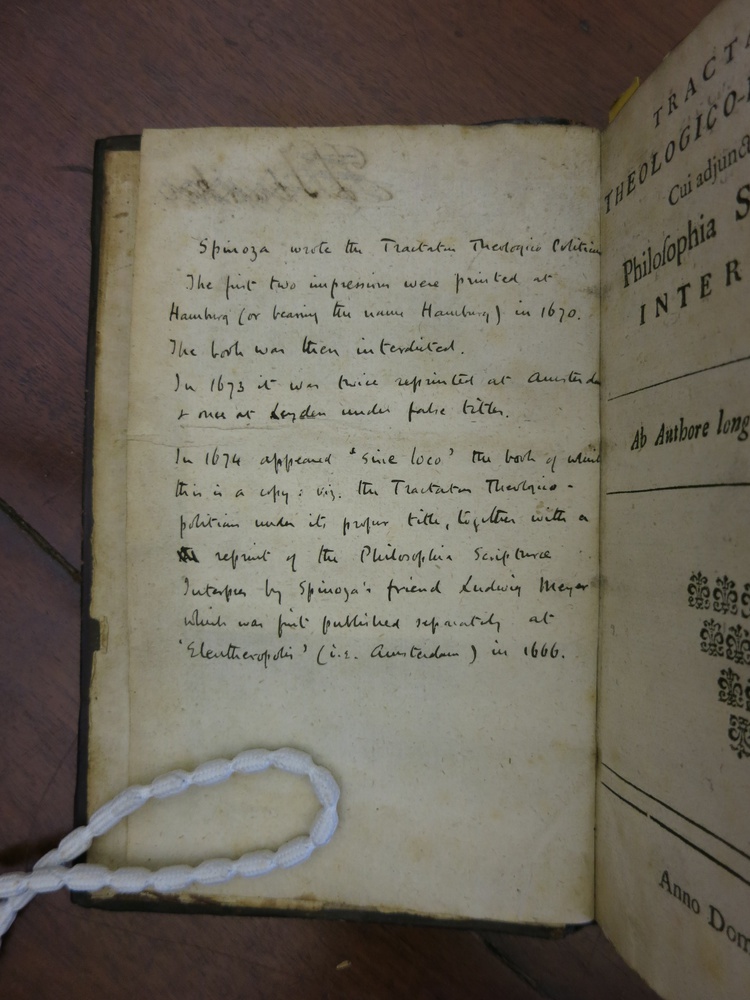 Spinoza wrote the Tractatus Theologico Politicus
The first two impressions were printed at
Hamburg (or bearing the name Hamburg) in 1670.
The book was then interdicted.
In 1673 it was twice reprinted at Amsterda
& once at Leyden under false titles.
In 1674 appeared 'sine loco' the book of which
this is a copy: viz. the Tractatus Theologico-
politicus under its proper title, together with a
reprint of the Philosophia Scripturæ
Interpres by Spinoza's friend Ludwig Meyer
which was first published separately at
'Eleutheropolis' (i.e. Amsterdam) in 1666.
TRACTA
THEOLOGICO-
Cui adjunct
Philosophia S
INTER
Ab Authore long
Anno Dom